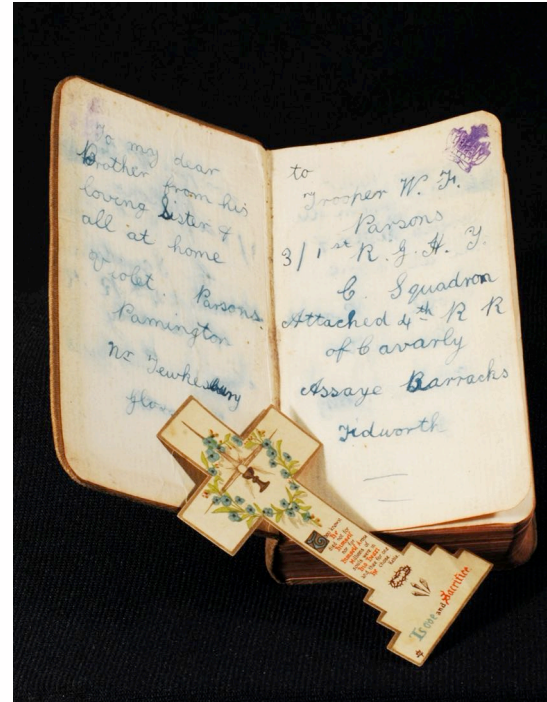 To my dear
Brother from his
loving Sister &
all at home
Violet. Parsons.
Pamington
Nr Tewkesbury
Glos
to
Trooper W. F.
Parsons
3/1st R. G. H. Y.
C. Squadron
Attached 4th R R
of Cavarly
Assaye Barracks
Tidworth
Love and Sacrifice